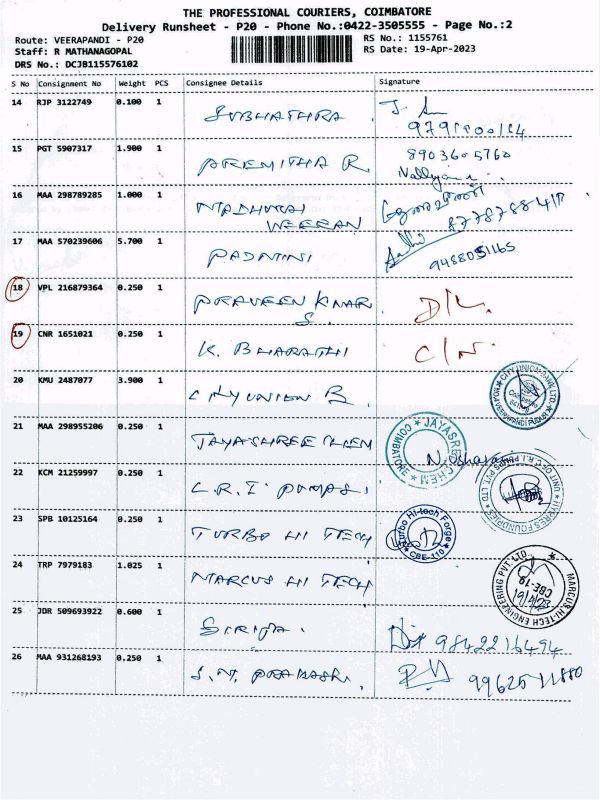 THE PROFESSIONAL COURIERS, COIMBATORE
Delivery Runsheet - P20 - Phone No.:0422-3505555 - Page No.:2
Route: VEERAPANDI - P20 RS No.: 1155761
Staff: R MATHANAGOPAL RS Date: 19-Apr-2023
DRS No.: DCJB115576102
S No Consignment No Weight PCS Consignee Details Signature
14 RJP 3122749 0.100 1 SUBHATHRA
15 PGT 5907317 1.900 1 PREMITHA R 8903605760
16 MAA 298789285 1.000 1 MADHURAI
VEERAN
17 MAA 570239606 5.700 1 PADMINI 9488051165
18 VPL 216879364 0.250 1 PRAVEEN KMAR D/L
S.
19 CNR 1651021 0.250 1 K. BHARATHI C/N.
20 KMU 2487077 3.900 1 CITY UNION B. CITY UNION BANK LTD. VEERAPANDI PUDUR
21 MAA 298955206 0.250 1 JAYASHREE CHEM JAYASREE CHEM COIMBATORE
22 KCM 21259997 0.250 1 C.R.I PUMPS. UNIT OF C.R.I. PUMPS PVT. LTD
23 SPB 10125164 0.250 1 TURBO HI TECH Turbo Hi-tech Forge CBE-110
24 TRP 7979183 1.025 1 MARCUS HI TECH MARCUS HI.TECH ENGINEERING PVT. LTD., CBE-19
25 JDR 509693922 0.600 1 9842216494
26 MAA 931268193 0.250 1